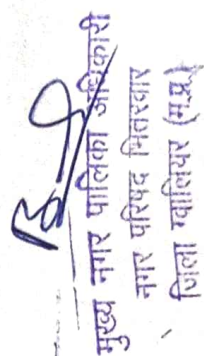 मुख्य नगर पालिका अधिकारी
नगर परिषद पिछोर
जिला ग्वालियर (म.प्र.)